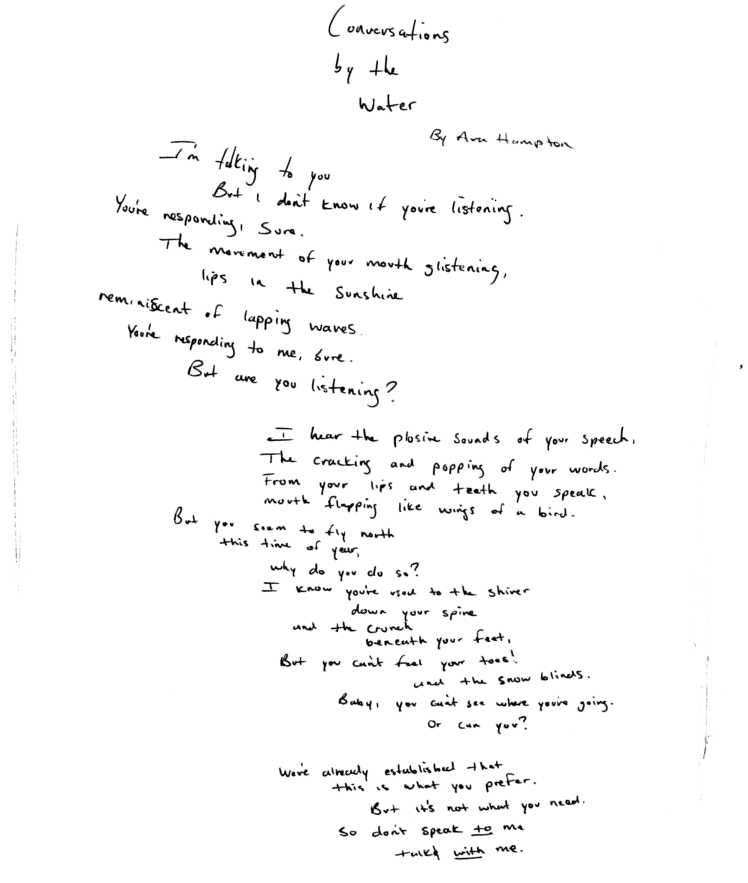 Conversations
by the
Water
By Ava Hampton
I'm talking to you
But I don't know if you're listening.
You're responding, Sure.
The movement of your mouth glistening,
lips in the sunshine
reminiscent of lapping waves.
You're responding to me, sure.
But are you listening?
I hear the plosive sounds of your speech,
The cracking and popping of your words.
From your lips and teeth you speak,
mouth flapping like wings of a bird.
But you seem to fly north
this time of year,
why do you do so?
I know you're used to the shiver
down your spine
and the crunch
beneath your feet,
But you can't feel your toes!
and the snow blinds.
Baby, you can't see where you're going.
Or can you?
We've already established that
this is what you prefer.
But it's not what you need.
So don't speak to me
talk with me.